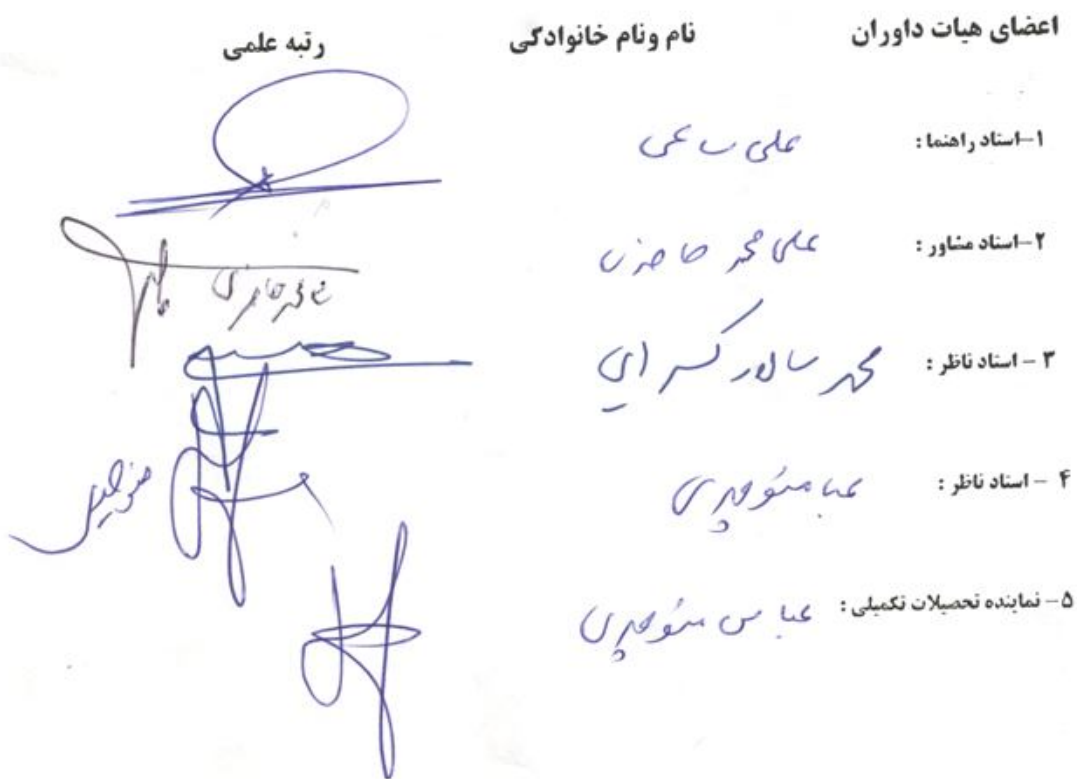 اعضای هیات داوران نام ونام خانوادگی رتبه علمی
۱-استاد راهنما : علی ساعی
۲-استاد مشاور : علی محمد حاضری
۳ - استاد ناظر : محمد سالار کسرایی
۴ - استاد ناظر : عباس منوچهری
۵- نماینده تحصیلات تکمیلی : عباس منوچهری